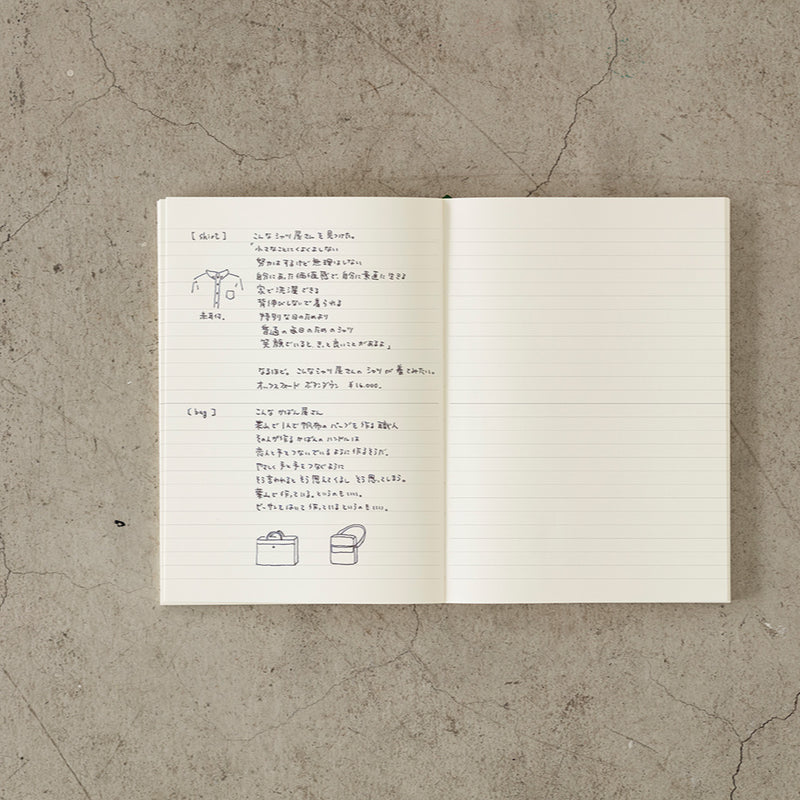 [shirt]
こんなシャツ屋さんを見つけた。
「小さなことにくよくよしない
努力はするけど無理はしない
自分にあった価値感で、自分に素直に生きる
家で洗濯できる
背伸びしないで着られる
特別な日のためより
普通の毎日のためのシャツ
笑顔でいると、きっと良いことがあるよ」
なるほど。こんなシャツ屋さんのシャツが着てみたい。
オックスフォード ボタンダウン ¥16,000.
[bag]
こんなかばん屋さん
葉山で1人で帆布の を作る職人
その人が作るかばんのハンドルは
恋人と手をつないでいるように作るそうだ。
やさしく手と手をつなぐように
そう言われるとそう思えてくるし そう思ってしまう。
葉山で作っている。というのもいい。
ビーサンをはいて作っているというのもいい。